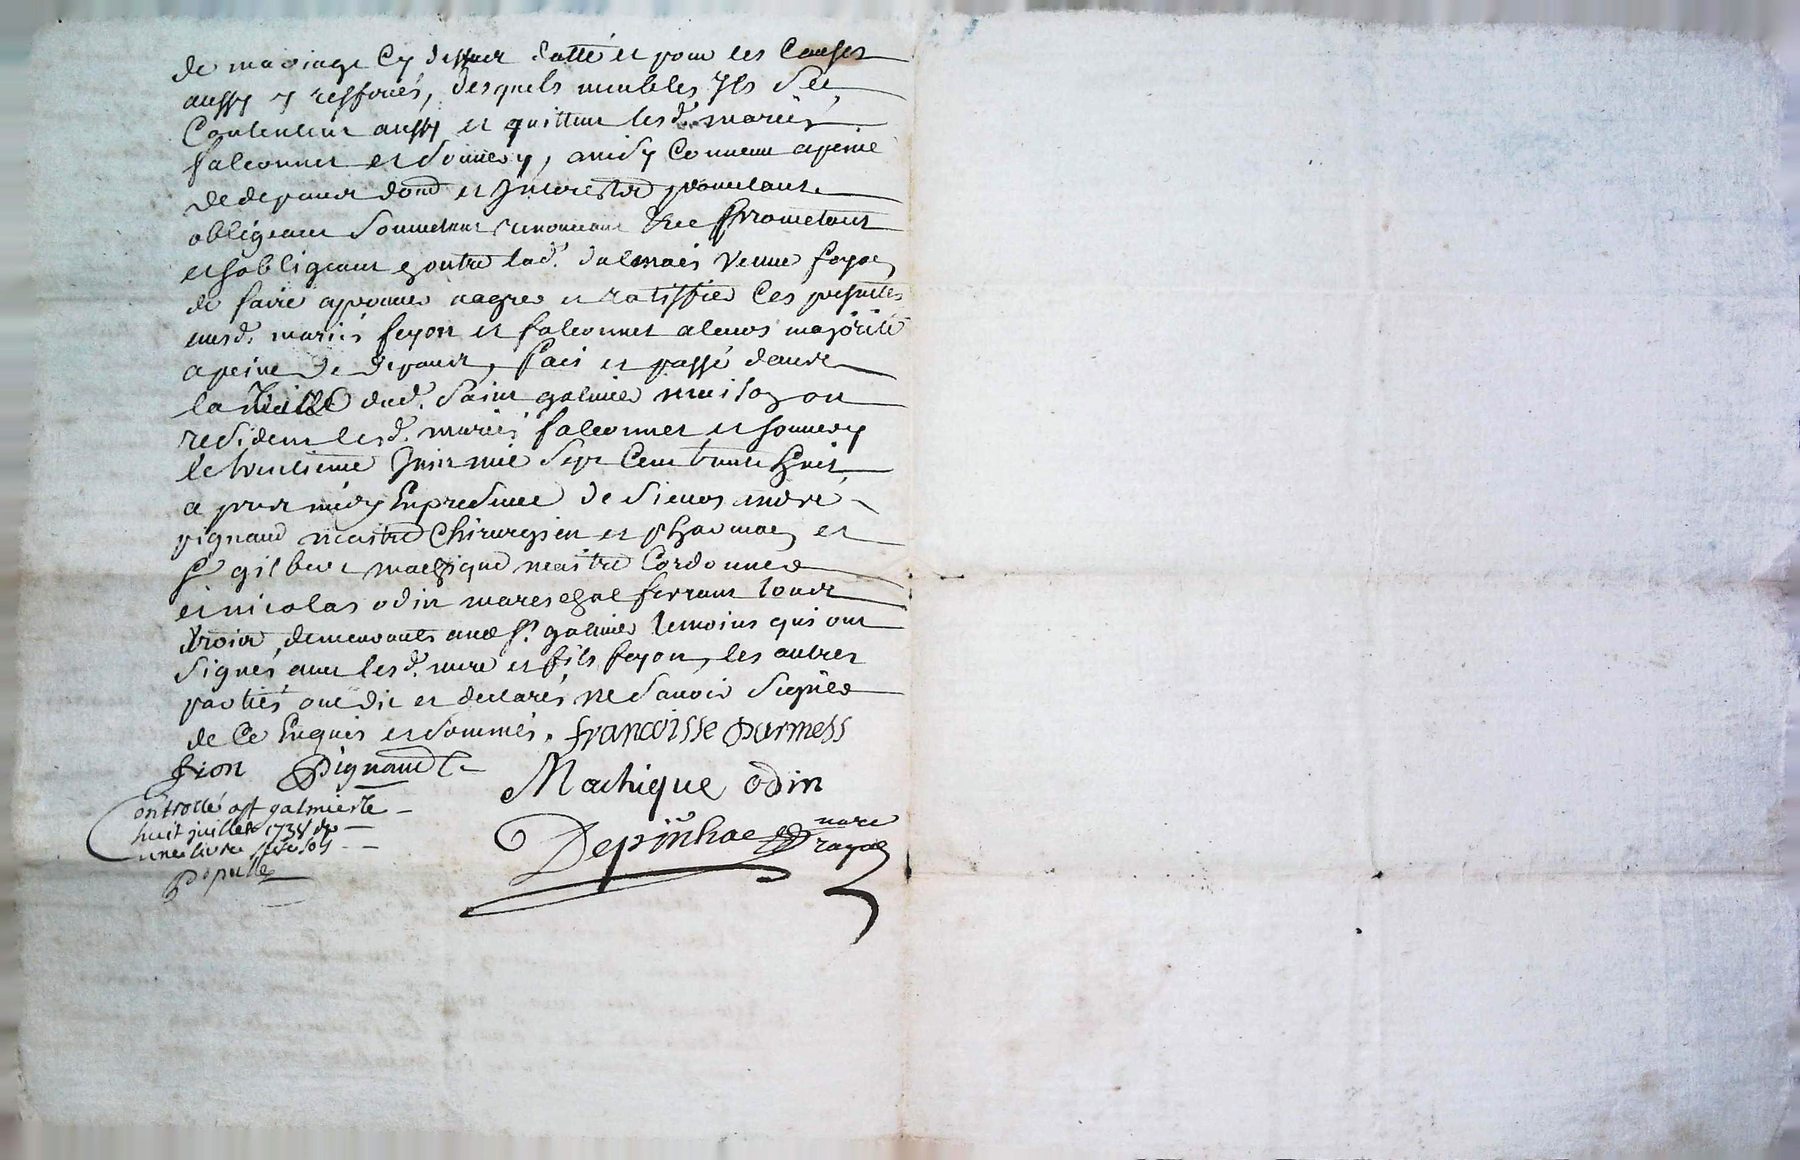 de mariage Cy dessus datté et pour les Causes
aussy y ressorés, desquels meubles Ils see
Contentent aussy et quittent lesd. mariés
falconnet et donnery, ainsy Convenu apeine
de depans domd et Interestd prometant
obligeant Soumetant renonceant &ce Prometant
et sobligeant contre lad. dalmais veuve feyon
de faire aprouver eagreer et ratiffier Ces presentes
ausd. mariés feyon et falconnet a leurs majorité
apeine de depans, fait et passé dans
la ville dud. Saint galmier maison ou
resident lesd. mariés falconnet et
le huitieme Juin mil Sept Cent trente huit
a pres midy En presence de Sieurs andré
pignaud maitre Chirurgien et pharmac et
Sr gilbert machique maitre Cordonnier
et nicolas odin mareschal ferrant tous
trois demeurants aud St. galmier temoins qui ont
Signés avec lesd. mere et fils feyon, les autres
partiés ont dit et declarés ne Savoir Signer
de Ce Enquis et Sommés. francoisse Darmess
fion Pignaud
Machique odin
Controllé a St galmier le
huit juillet 1738
une livre sols
Depinhac nore Royal
Popule